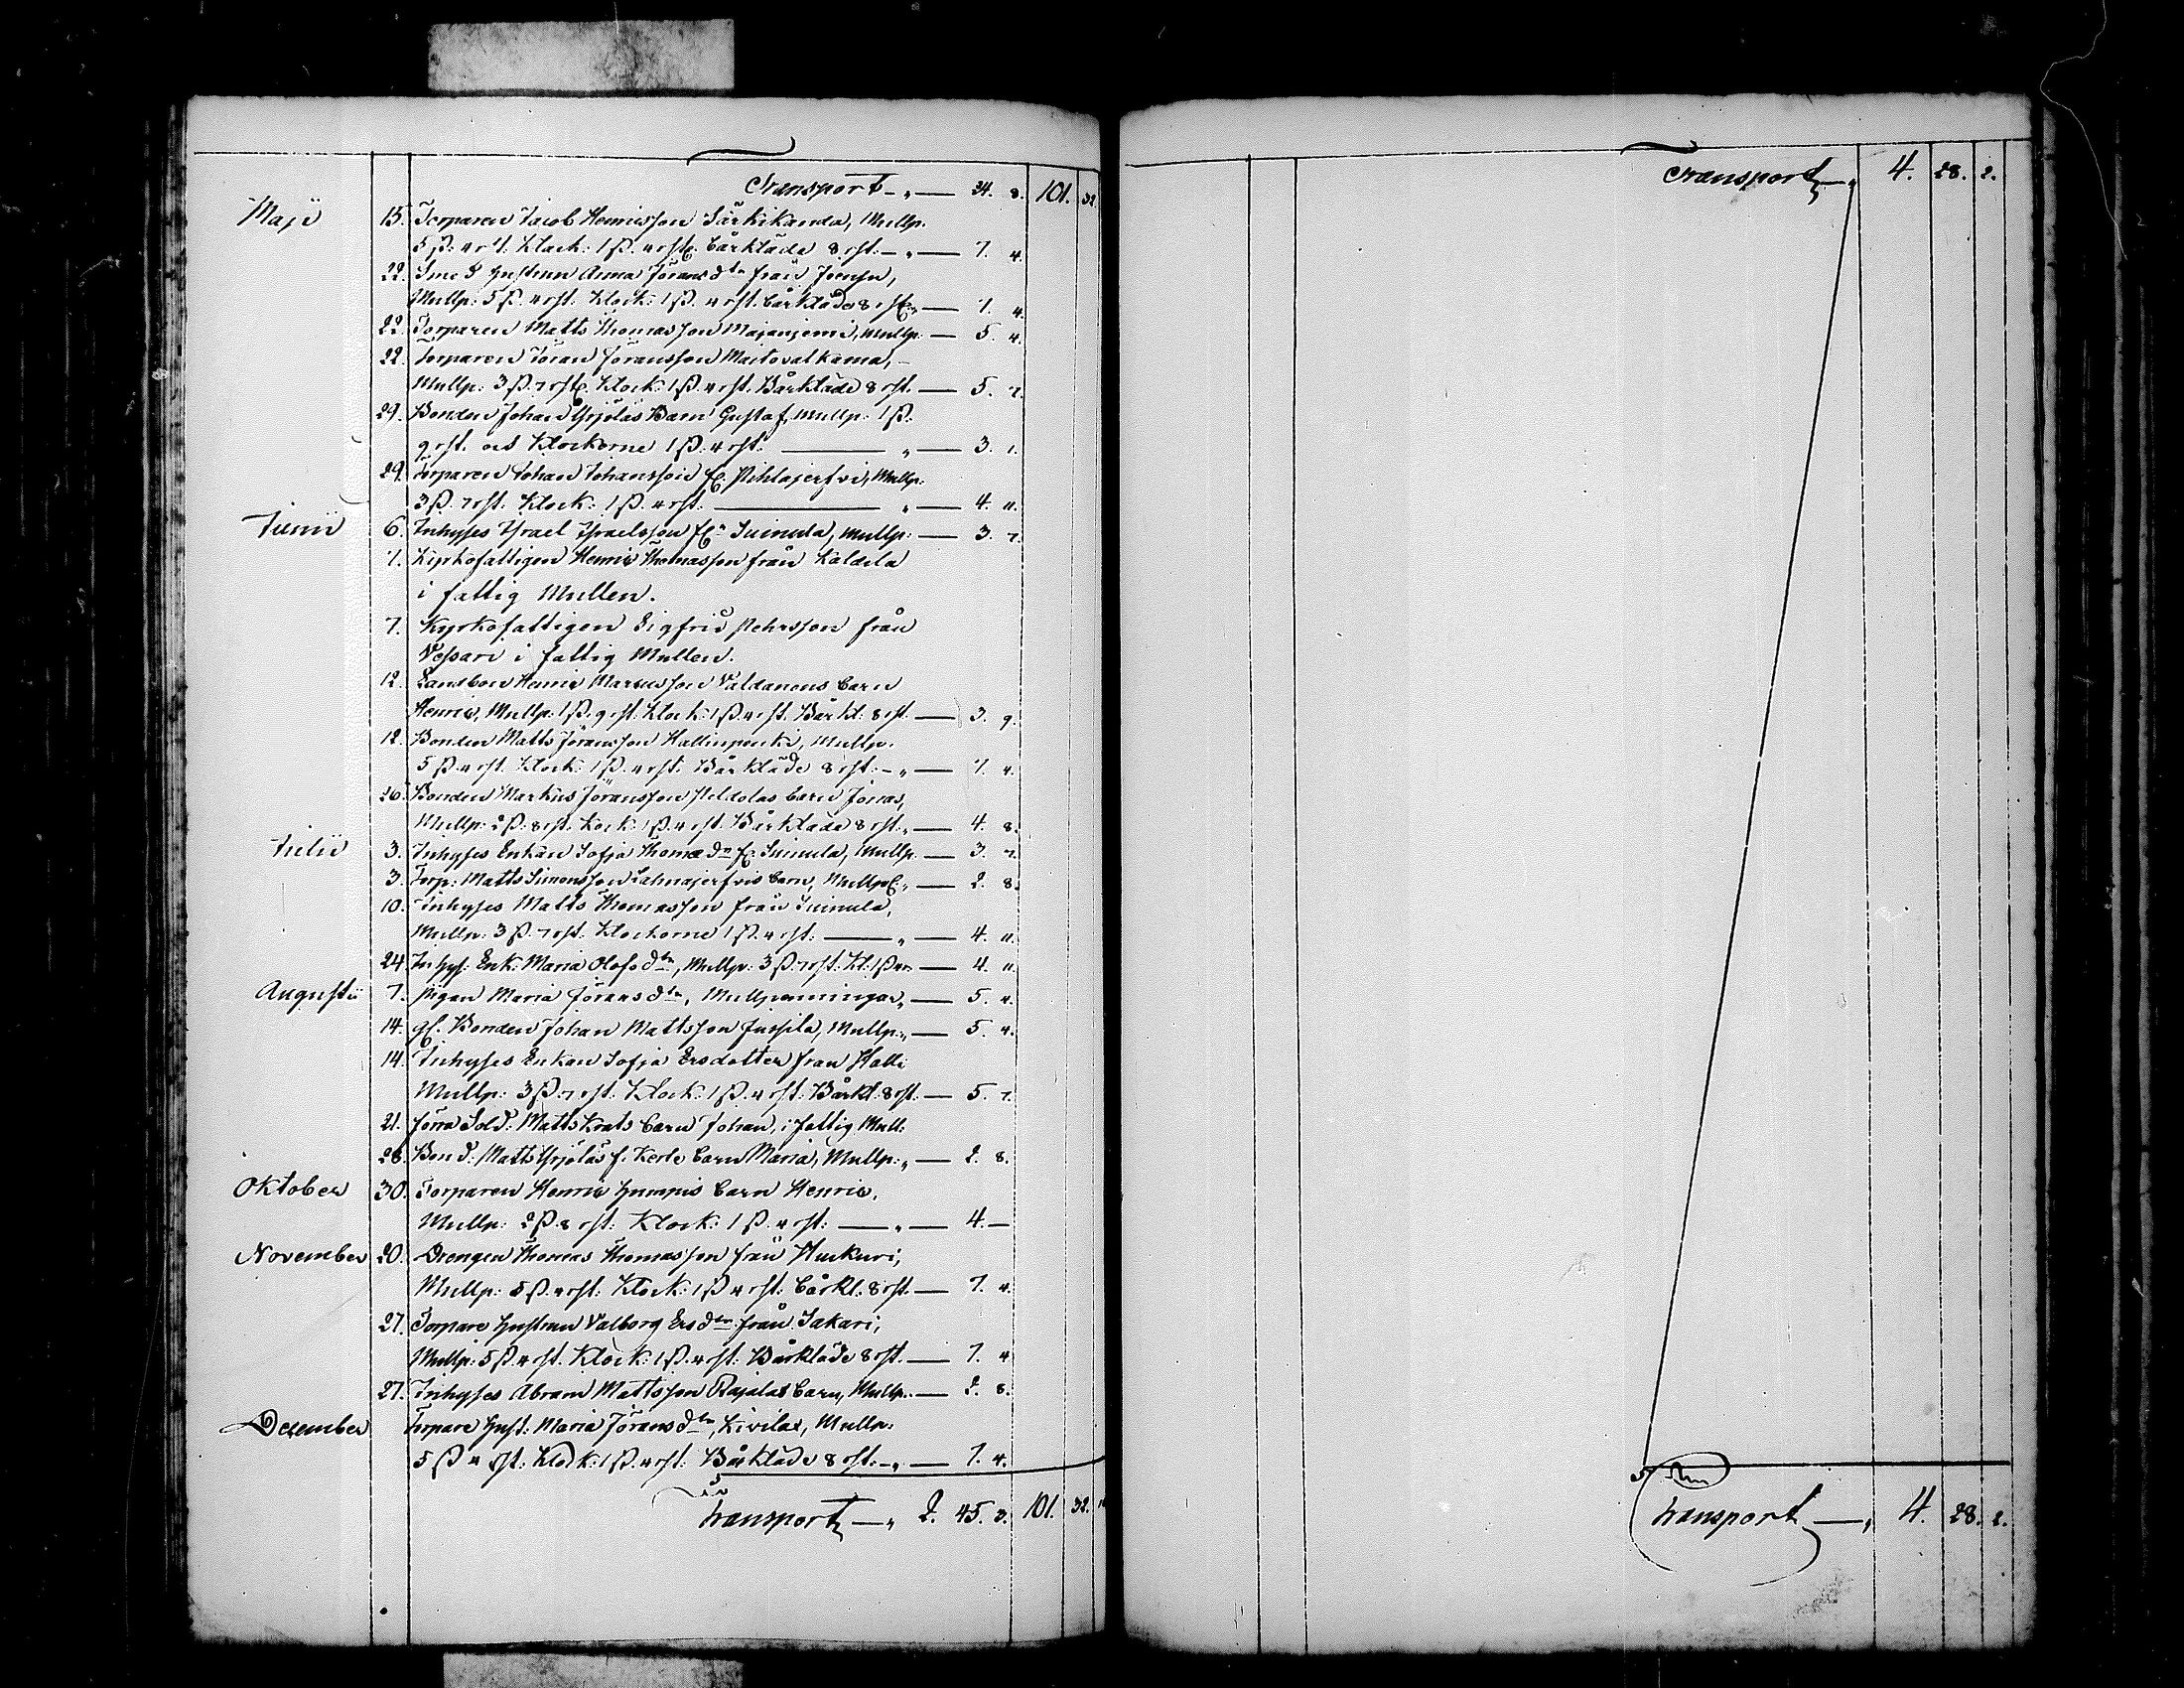 Transport — „ — 34. 8. 101. 32.
Maji 15. Torparen Jacob Henricsson Särkikanda, Mullp.
5 ß: 4 rst. Klock: 1 ß. 4 rst. Bårkläde 8 rst. — „ — 7. 4.
22. Smed hustrun Anna Jöransdtr från
Mullp: 5 ß. 4 rst. Klock: 1 ß. 4 rst. Bårkläde 8 rst. — 7. 4.
22. Torparen Matts Thomasson Majanjemi, Mullp: — 5. 4.
22. Torparen Jöran Jöransson Maitovalkama,
Mullp: 3 ß. 7 rst. Klock: 1 ß. 4 rst. Bårkläde 8 rst. — 5. 7.
29. Bonden Johan Yrjöläs Barn Gustaf, Mullp: 1 ß.
9 rst. och Klockorne 1 ß: 4 rst: — „ — 3. 1.
29. Torparen Johan Johansson fr. Pihlajerfvi, Mullp:
3 ß. 7 rst. Klock: 1 ß. 4 rst. — „ — 4. 11.
Junii 6. Inhyses Israel Israelsson frn Suinula, Mullp: — 3. 7.
7. Kyrkofattigen Henric Thomasson från Kaldila
i fattig Mullen.
7. Kyrkofattigen Sigfrid Pehrsson från
Vessari i fattig Mullen.
12. Landbon Henric Marcusson Valdanens barn
Henric, Mullp: 1 ß. 9 rst. Klock: 1 ß. 4 rst. Bårkl: 8 rst. — 3. 9.
12. Bonden Matts Jöransson Hallinpenki, Mullp.
5 ß. 4 rst. Klock: 1 ß. 4 rst. Bårkläde 8 rst: — „ — 7. 4.
26. Bonden Markus Jöransson Peldolas barn Jonas,
Mullp: 2 ß: 8 rst. Kock: 1 ß. 4 rst. Bårkläde 8 rst. „ — 4. 8.
Julii 3. Inhyses Enkan Sofja Thomædr fr. Suinula, Mullp. — 3. 7.
3. Torp: Matts Simonsson Lahnajerfvis barn, Mullp: „ — 2. 8.
10. Inhyses Matts Thomasson från Suinula,
Mullp: 3 ß. 7 rst. Klockorne 1 ß. 4 rst: — „ — 4. 11.
24. Inhys: Enk: Maria Olofsdtr, Mullp: 3 ß. 7 rst: Kl: 1 ß 4 r — 4. 11.
Augustii 7. Pigan Maria Jöransdtr, Mullpenningar „ — 5. 4.
14. gl. Bonden Johan Mattsson Jussila, Mullp: „ — 5. 4.
14. Inhyses Enkan Sofja Ersdotter från Halli
Mullp: 3 ß. 7 rst. Klock: 1 ß. 4 rst: Bårkl: 8 rst. — 5. 7.
21. förra Sold: Matts Krats barn Johan, i fattig Mull:
28. Bond: Matts Yrjöläs f. Kerte barn Maria, Mullp: „ — 2. 8.
Oktober 30. Torparen Henric Humpis barn Henric,
Mullp: 2 ß. 8 rst: Klock: 1 ß. 4 rst: — „ — 4. —
November 20. Drengen Thomas Thomasson från Huckuri,
Mullp: 5 ß. 4 rst: Klock: 1 ß 4 rst: bårkl. 8 rst. — 7. 4.
27. Torpare hustrun Valborg Ersdtr från Sakari,
Mullp: 5 ß. 4 rst. Klock: 1 ß. 4 rst: Bårkläde 8 rst. — 7. 4
27. Inhyses Abram Mattsson Rajalas barn, Mullp. — 2. 8.
December Torpare hust: Maria Jöransdtr, Kivilax, Mullp:
5 ß 4 rst: Klock: 1 ß. 4 rst: Bårkläde 8 rst. — „ — 7. 4.
Transport — „ 2. 45. 3. 101. 32.
Transport — „ 4. 28. 2.
Transport — „ 4. 28. 2.